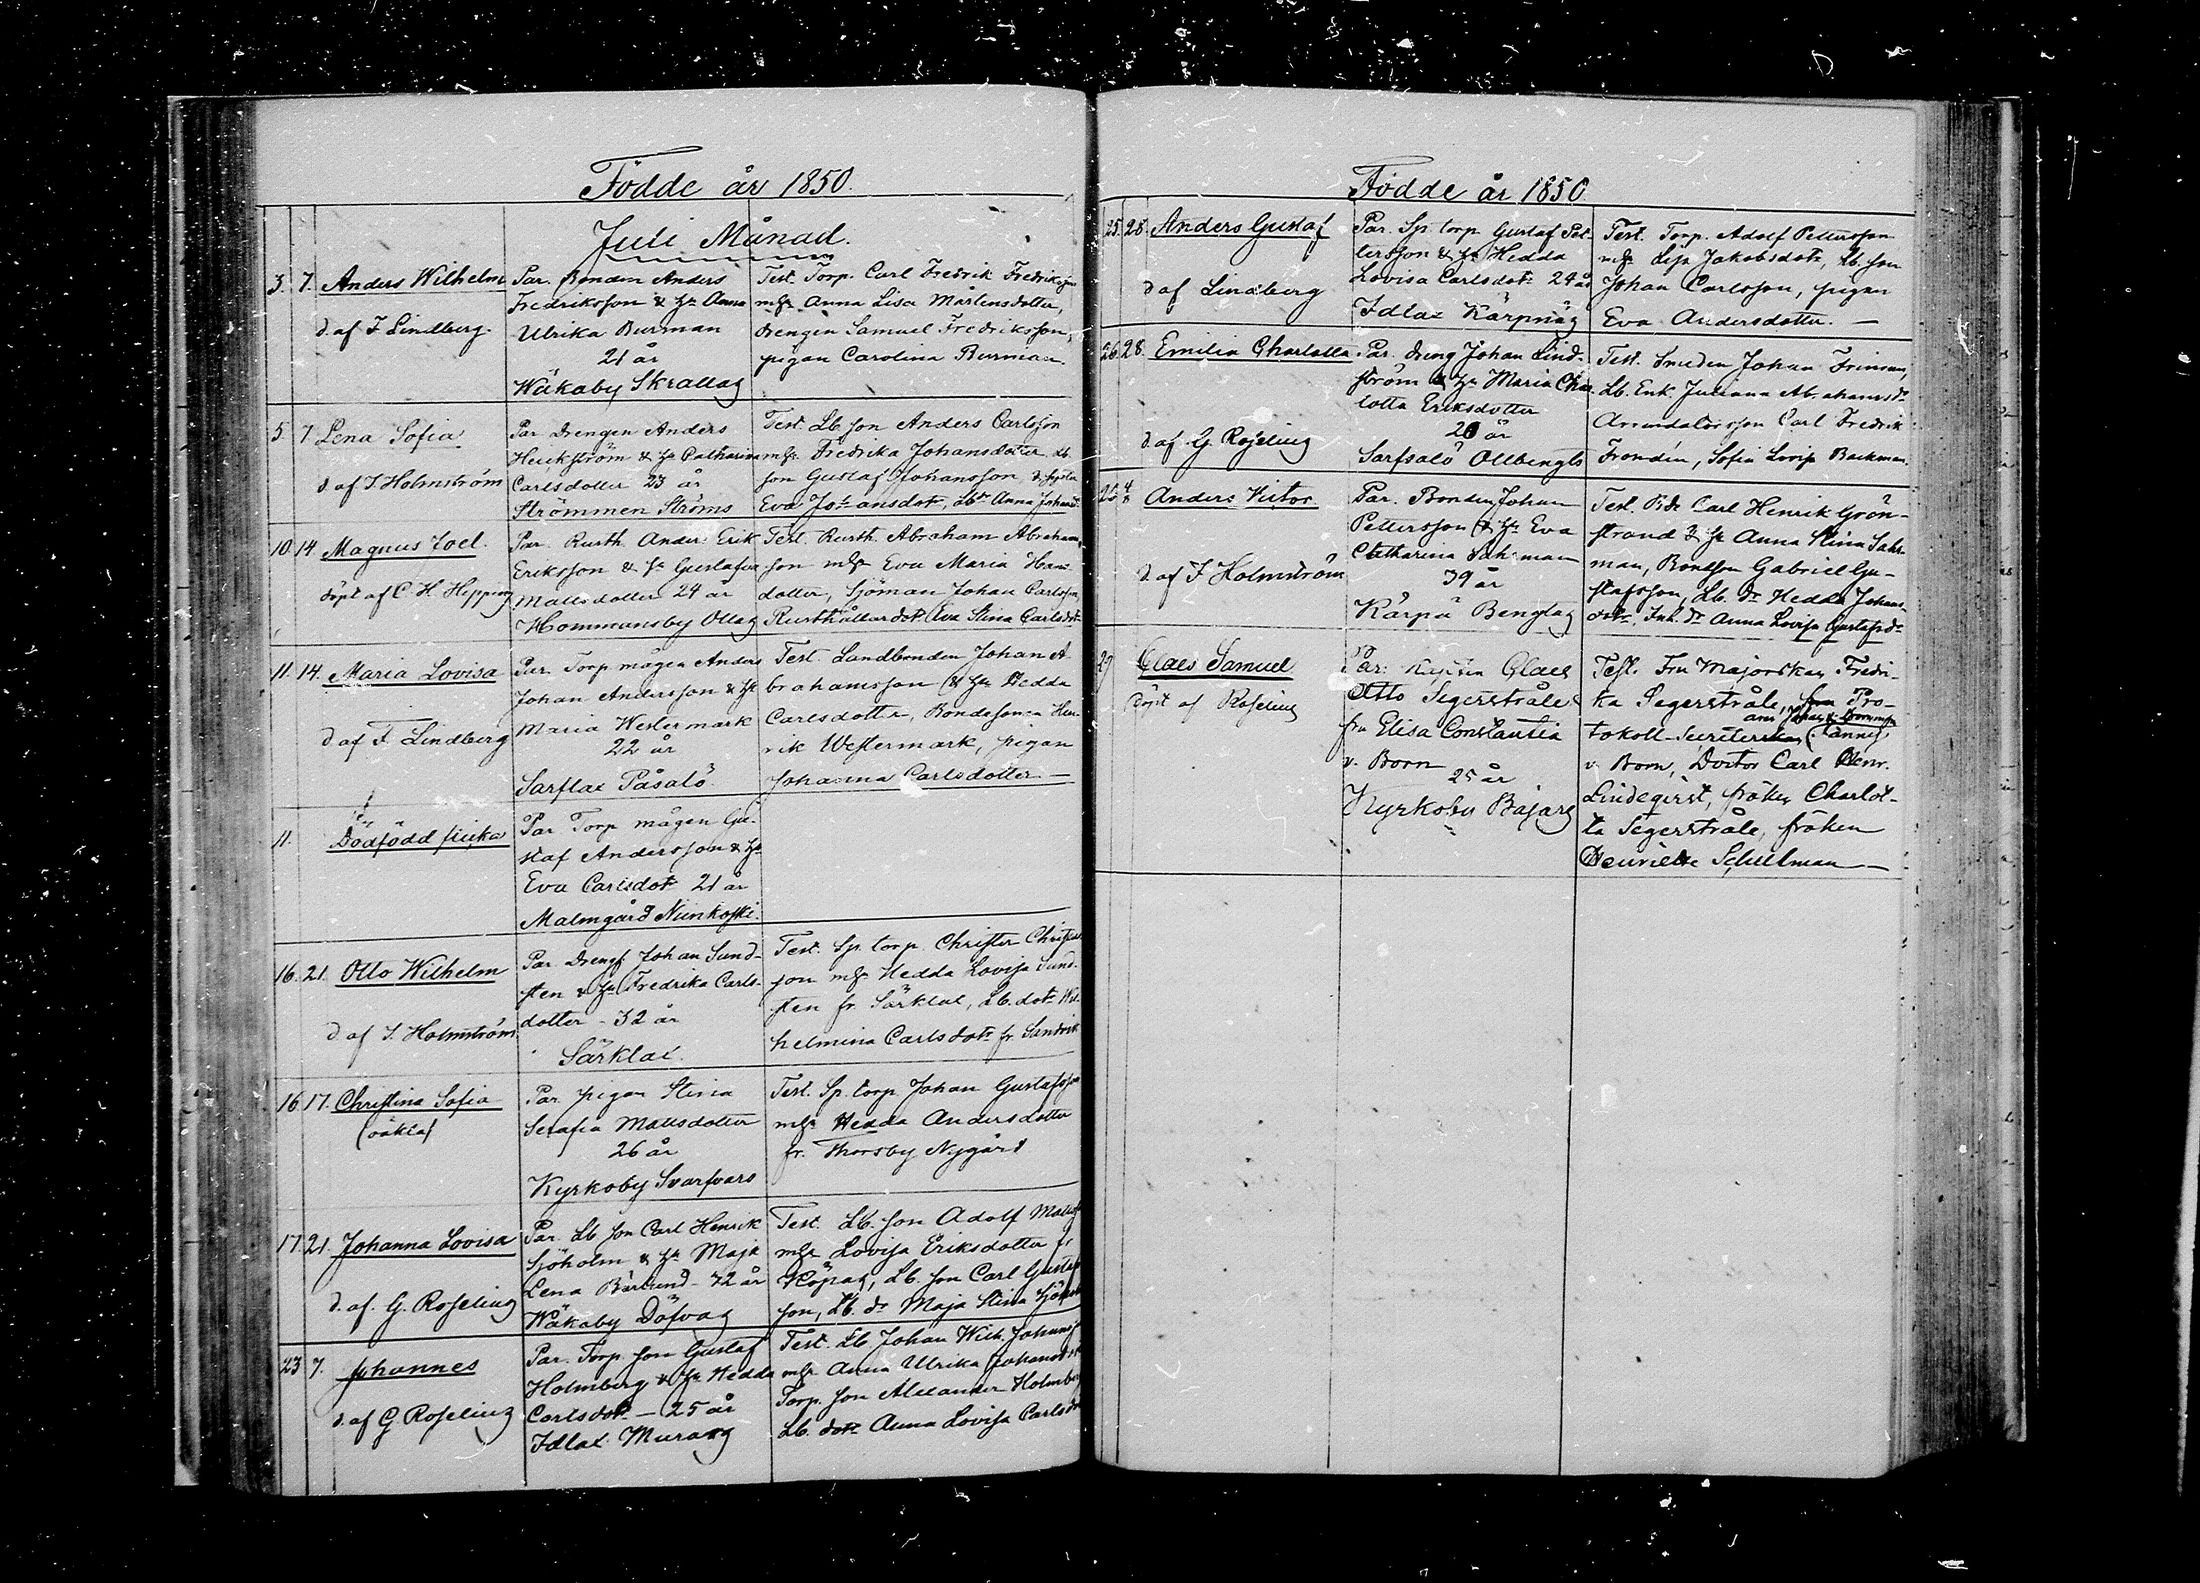 Födde år 1850.
Juli Månad.
3. 7. Anders Wilhelm
d af F Lindberg.
Par. Bonden Anders
Fredriksson & hu Anna
Ulrika Burman
21 år
Wåkaby Skrallas
Test. Torp. Carl Fredrik Fredriksson
m hu Anna Lisa Mårtensdotter,
drengen Samuel Fredriksson,
pigan Carolina Burman
5 7 Lena Sofia
d af J. Holmström
Par Drengen Anders
Henkström & hu Catharina
Carlsdotter 23 år
Strömmen Ströms
Test. Lb son Anders Carlsson
m hu Fredrika Johansdotter Lb
son Gustaf Johansson &
Eva Johansdotr, Lbdr Anna Johansdr
10 14 Magnus Joel.
döpt af C. H. Hipping
Par. Rusth. Anders Erik
Eriksson & hu Gustafva
Mattsdotter 24 år
Hommansby Ollas
Test. Rusth. Abraham Abraham-
son m hu Eva Maria Hans
dotter, Sjöman Johan Carlsson,
Rusthållardotr Eva Stina Carlsdotr
11. 14. Maria Lovisa
d af F. Lindberg
Par. Torp mågen Anders
Johan Andersson & hu
Maria Westermark
22 år
Sarflax Påsalö
Test. Landbonden Johan A-
brahamsson & hu Hedda
Carlsdotter, Bondesonen Hen-
rik Westermark, pigan
Johanna Carlsdotter —
11. Dödfödd flicka
Par Torp mågen Gu-
staf Andersson & hu
Eva Carlsdotr 21 år
Malmgård Niinkoski.
16. 21. Otto Wilhelm
d af J. Holmström.
Par Drengs Johan Sund-
sten & hu Fredrika Carls-
dotter - 32 år
Särklax.
Test. Sp. torp. Christer Christers
son m hu Hedda Lovisa Sund-
sten fr. Särklax, Lb. dotr Wil-
helmina Carlsdotr fr. Sandvik
16 17. Christina Sofia
(oäkta)
Par. pigan Stina
Serafia Mattsdotter
26 år
Kyrkoby Svarfvars
Test. Sp. torp Johan Gustafsson
m hu Hedda Andersdotter
fr. Thorsby Nygård
17. 21. Johanna Lovisa
d. af. G. Roseling
Par. Lb son Carl Henrik
Sjöholm & hu Maja
Lena Bärlund - 42 år
Wåkaby Döfvas
Test. Lb. son Adolf Matts
m hu Lovisa Eriksdotter fr
Köpas, Lb. son Carl Gustaf
son, Lb. dr Maja Stina
23 7. Johannes
d. af G Roseling
Par. Torp. son Gustaf
Holmberg & hu Hedda
Carlsdotr — 25 år
Idlax Muras
Test. Lb Johan Wilh. Johans
m hu Anna Ulrika Johansdotr
Torp. son Alexander Holmberg
Lb. dotr Anna Lovisa Carlsdr
Födde år 1850
25. 28. Anders Gustaf
d af Lindberg
Par. Sp. torp. Gustaf Pet-
tersson & hu Hedda
Lovisa Carlsdotr 24 år
Idlax Kärpnäs
Test. Torp. Adolf Pettersson
m hu Lisa Jakobsdotr, Lb. son
Johan Carlsson, pigan
Eva Andersdotter. —
26. 28. Emilia Charlotta
d. af G. Roseling
Par. dreng Johan Lind-
ström & hu Maria Char-
lotta Eriksdotter
20 år
Sarfsalö Ollbengts
Test. Smeden Johan Friman,
Lb. Enk. Juliana Abrahamsdr
Arrendatorsson Carl Fredrik
Frondén, Sofia Lovisa Backman.
25 4/8 Anders Victor
d af J Holmström
Par. Bonden Johan
Pettersson & hu Eva
Catharina Sahrman
39 år
Kärpä Bengtas
Test. Bde Carl Henrik Grön-
strand & hu Anna Stina Sahr-
man, Bondson Gabriel Gu-
stafsson, Lb. dr Hedda Johans-
dotr, Inh. dr Anna Lovisa Gustafsdr
29 Claes Samuel
Döpt af Roseling
Par. Kapten Claes
Otto Segerstråle &
fru Elisa Constantia
v. Born
25 år
Kyrkoby Båjars
Test. Fru Majorskan Fredri-
ka Segerstråle, fru Pro-
tokoll-Secreterskan (Fanny)
v. Born, Doctor Carl Henr.
Lindeqvist, fröken Charlot-
ta Segerstråle, fröken
Henriette Schulman —